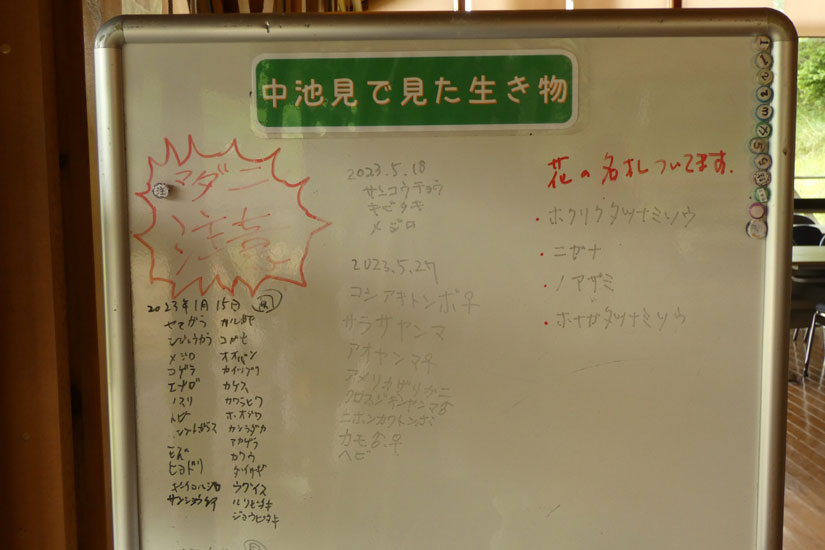 中池見で見た生き物
マダニ
注意
注
2023年1月15日
ヤマガラ
シジュウカラ
メジロ
コゲラ
エナガ
ノスリ
トビ
モズ
ヒヨドリ
カルガモ
コガモ
オオバン
カイツブリ
カケス
カワラヒワ
ホオジロ
カシラダカ
アカゲラ
カワウ
ダイサギ
ウグイス
ルリビタキ
ジョウビタキ
2023.5.18
サンコウチョウ
キビタキ
メジロ
2023.5.27
コシアキトンボ♀
サラサヤンマ
アオヤンマ♀
アメリカザリガニ
クロスジギンヤンマ♂
ニホンカワトンボ
カモ♂♀
ヘビ
花の名札ついてます.
・ホクリクタツナミソウ
・ニガナ
・ノアザミ
・ホナガタツナミソウ